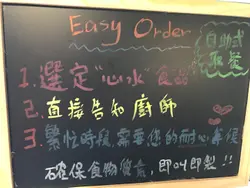 Easy Order
自助式
取餐
1. 選定"心水"食品
2. 直接告知廚師
3. 繁忙時段需要您的耐心等候
確保食物質素，即叫即製!!